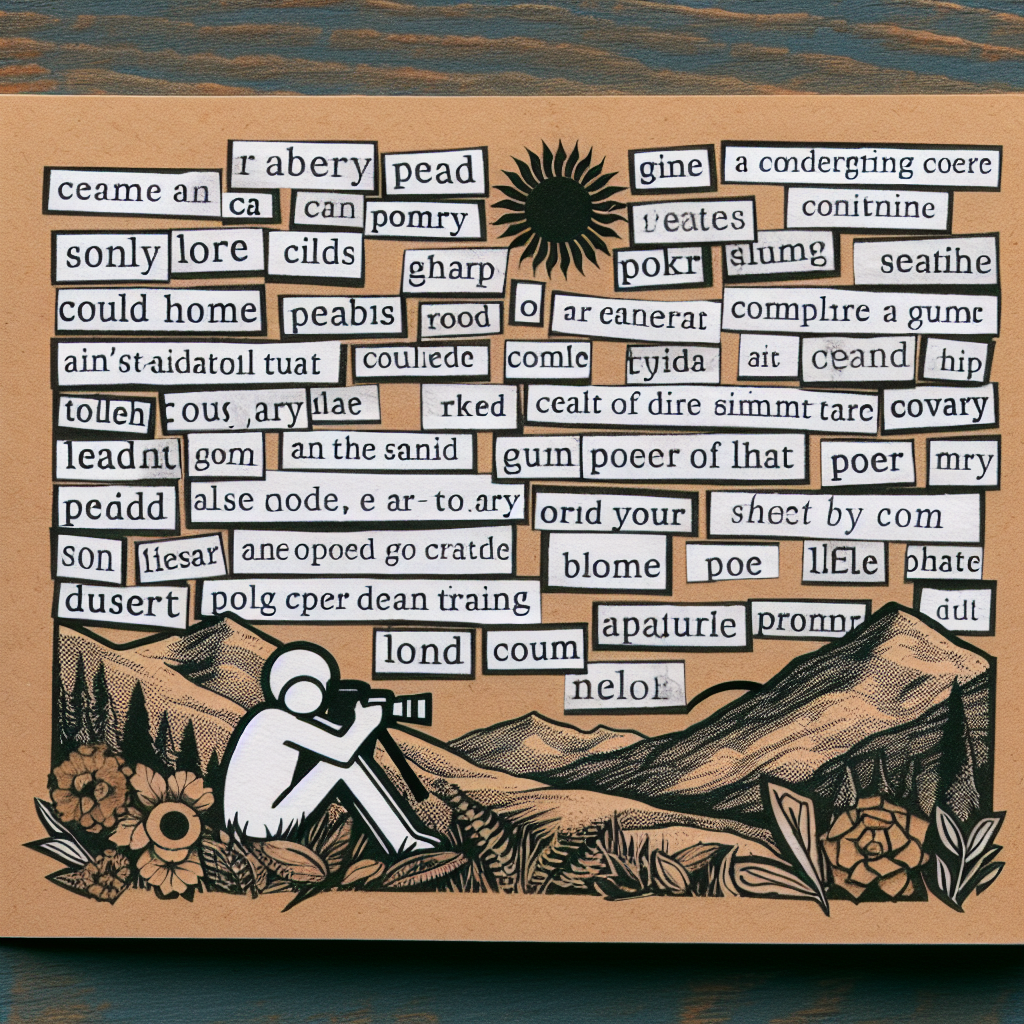 r abery pead gine a condergting coere
ceame an ca can pomry veates conitnine
sonly lore cilds gharp pokr slumg seatihe
could home peabis rood o ar eanerat complire a gumc
ain'st-aidatoil tuat comlc tyida ait ceand hip
tolleh ilae rked cealt of dire simimt tarc covary
leadnt gom an the sanid gum poeer of lhat poer mry
peidd alse node, e ar-to.ary orid your sheet by com
son liesar ane opoed go cratde blome poe llEle phate
dusert polg cper dean training apaturle promnr dult
lond coum
nelor